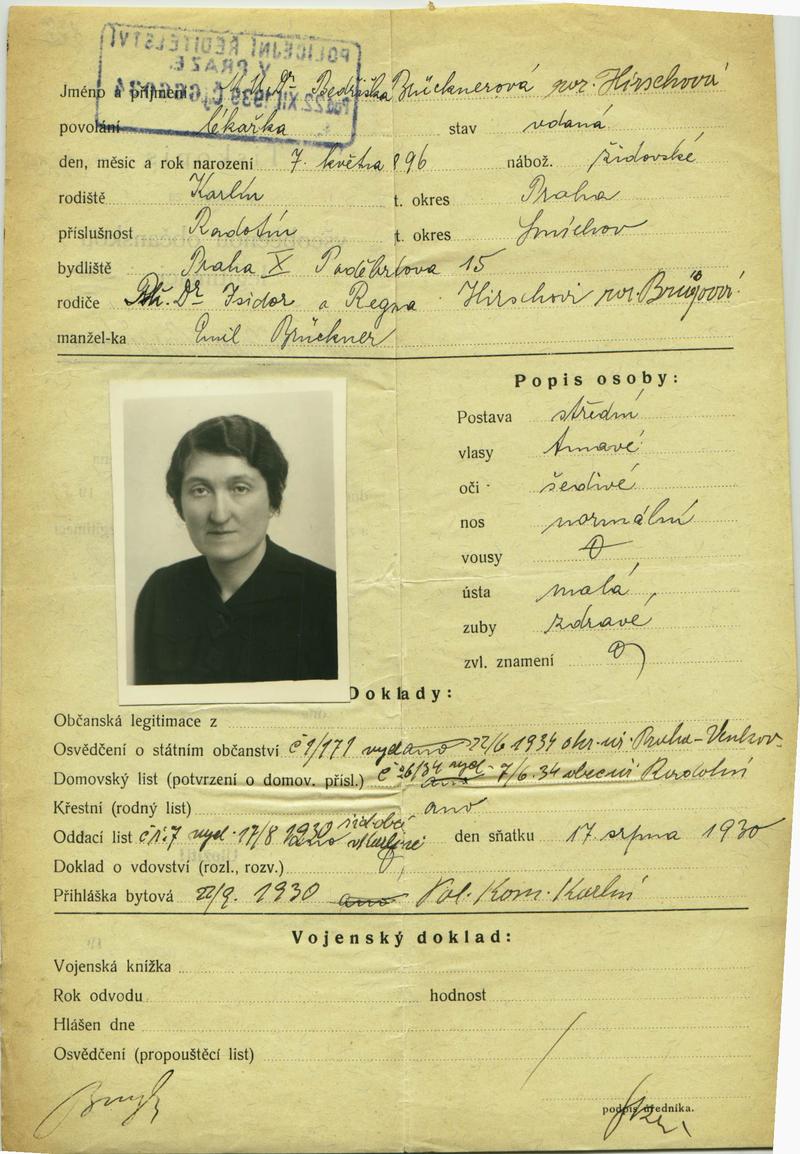 POLICEJNÍ ŘEDITELSTVÍ
V PRAZE
22 XII 1939
Jméno a příjmení M.U.Dr. Bedřiška Brücknerová roz. Hirschová
povolání lékařka stav vdaná
den, měsíc a rok narození 7. května 896 nábož. židovské
rodiště Karlín t. okres Praha
příslušnost Radotín t. okres Smíchov
bydliště Praha X Poděbradova 15
rodiče Dr. Isidor a Regna Hirschovi roz.
manžel-ka Emil Brückner
Popis osoby:
Postava střední
vlasy tmavé
oči šedivé
nos normální
vousy
ústa malá
zuby zdravé
zvl. znamení
Doklady:
Občanská legitimace z
Osvědčení o státním občanství č 1/171 vyd ano 22/6 1934 okr. úř. Praha-Venkov
Domovský list (potvrzení o domov. přísl.) č 26/34 vyd. ano 7/6.34 obec úř Radotín
Křestní (rodný list) ano
Oddací list vyd. 17/8 1930 den sňatku 17. srpna 1930
Doklad o vdovství (rozl., rozv.)
Přihláška bytová 22/9. 1930 ano Pol. Kom. Karlín
Vojenský doklad:
Vojenská knížka
Rok odvodu hodnost
Hlášen dne
Osvědčení (propouštěcí list)
podpis úředníka.